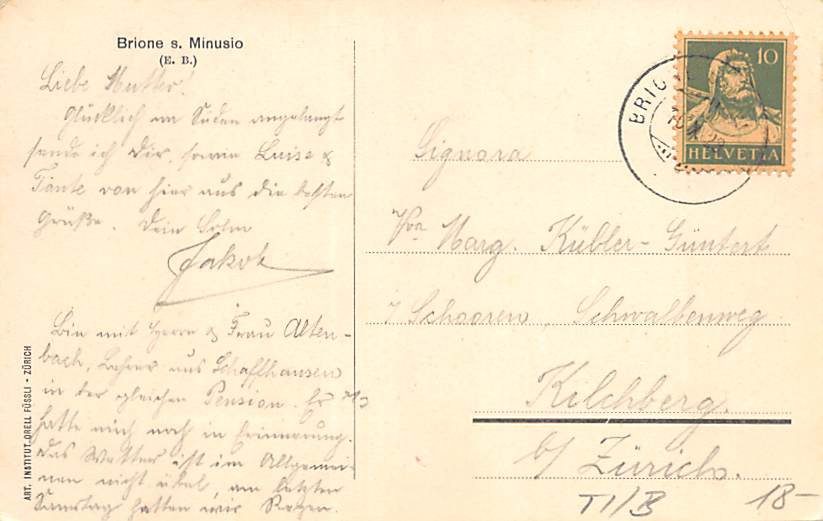 Brione s. Minusio
(E. B.)
Liebe Mutter!
Glücklich im Süden angelangt
sende ich Dir, sowie Luise &
Tante von hier aus die besten
Grüße. Dein Sohn
Jakob
Bin mit Herrn & Frau Alten-
bach, Lehrer aus Schaffhausen
in der gleichen Pension. Er
hatte mich noch in Erinnerung.
Das Wetter ist im Allgemei-
nen nicht übel, am letzten
Samstag hatten wir Regen.
ART. INSTITUT ORELL FÜSSLI - ZÜRICH
10
HELVETIA
BRIONE
Signora
Marg. Kübler-Güntert
Schooren, Schwalbenweg
Kilchberg.
b/ Zürich.
TI/B
18-